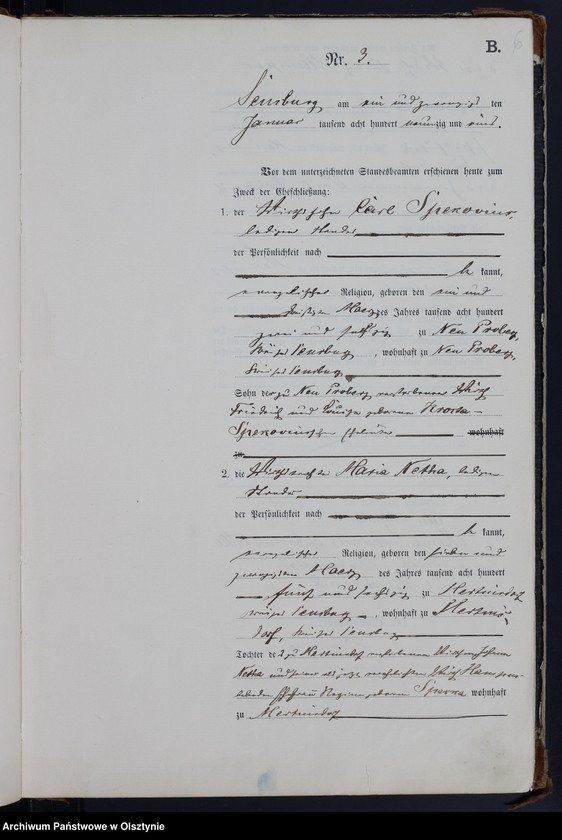 B.
6
Nr. 3.
Sensburg am ein und zwanzigsten
Januar tausend acht hundert neunzig und eins.
Vor dem unterzeichneten Standesbeamten erschienen heute zum
Zweck der Eheschließung:
1. der Wirthssohn Carl Sperovius,
ledigen Standes
der Persönlichkeit nach
be kannt,
evangelischer Religion, geboren den ein und
dreißigsten Maerz des Jahres tausend acht hundert
zwei und sechzig zu Neu Proberg,
Kreises Sensburg, wohnhaft zu Neu Proberg,
Kreises Sensburg
Sohn der zu Neu Proberg verstorbenen Wirth
Friedrich und Louise geborene
Sperovius'schen Eheleute wohnhaft
zu
2. die Wirthstochter Maria Nekka, ledigen
Standes,
der Persönlichkeit nach
be kannt,
evangelischer Religion, geboren den sieben und
zwanzigsten Maerz des Jahres tausend acht hundert
fünf und sechzig zu Mertinsdorf
Kreises Sensburg, wohnhaft zu Mertins-
dorf, Kreises Sensburg
Tochter des zu Mertinsdorf verstorbenen Wirthen Johann
Nekka und seiner als jetzt verehelichten Wirth
lebenden Ehefrau Regine geborene wohnhaft
zu Mertinsdorf
Archiwum Państwowe w Olsztynie